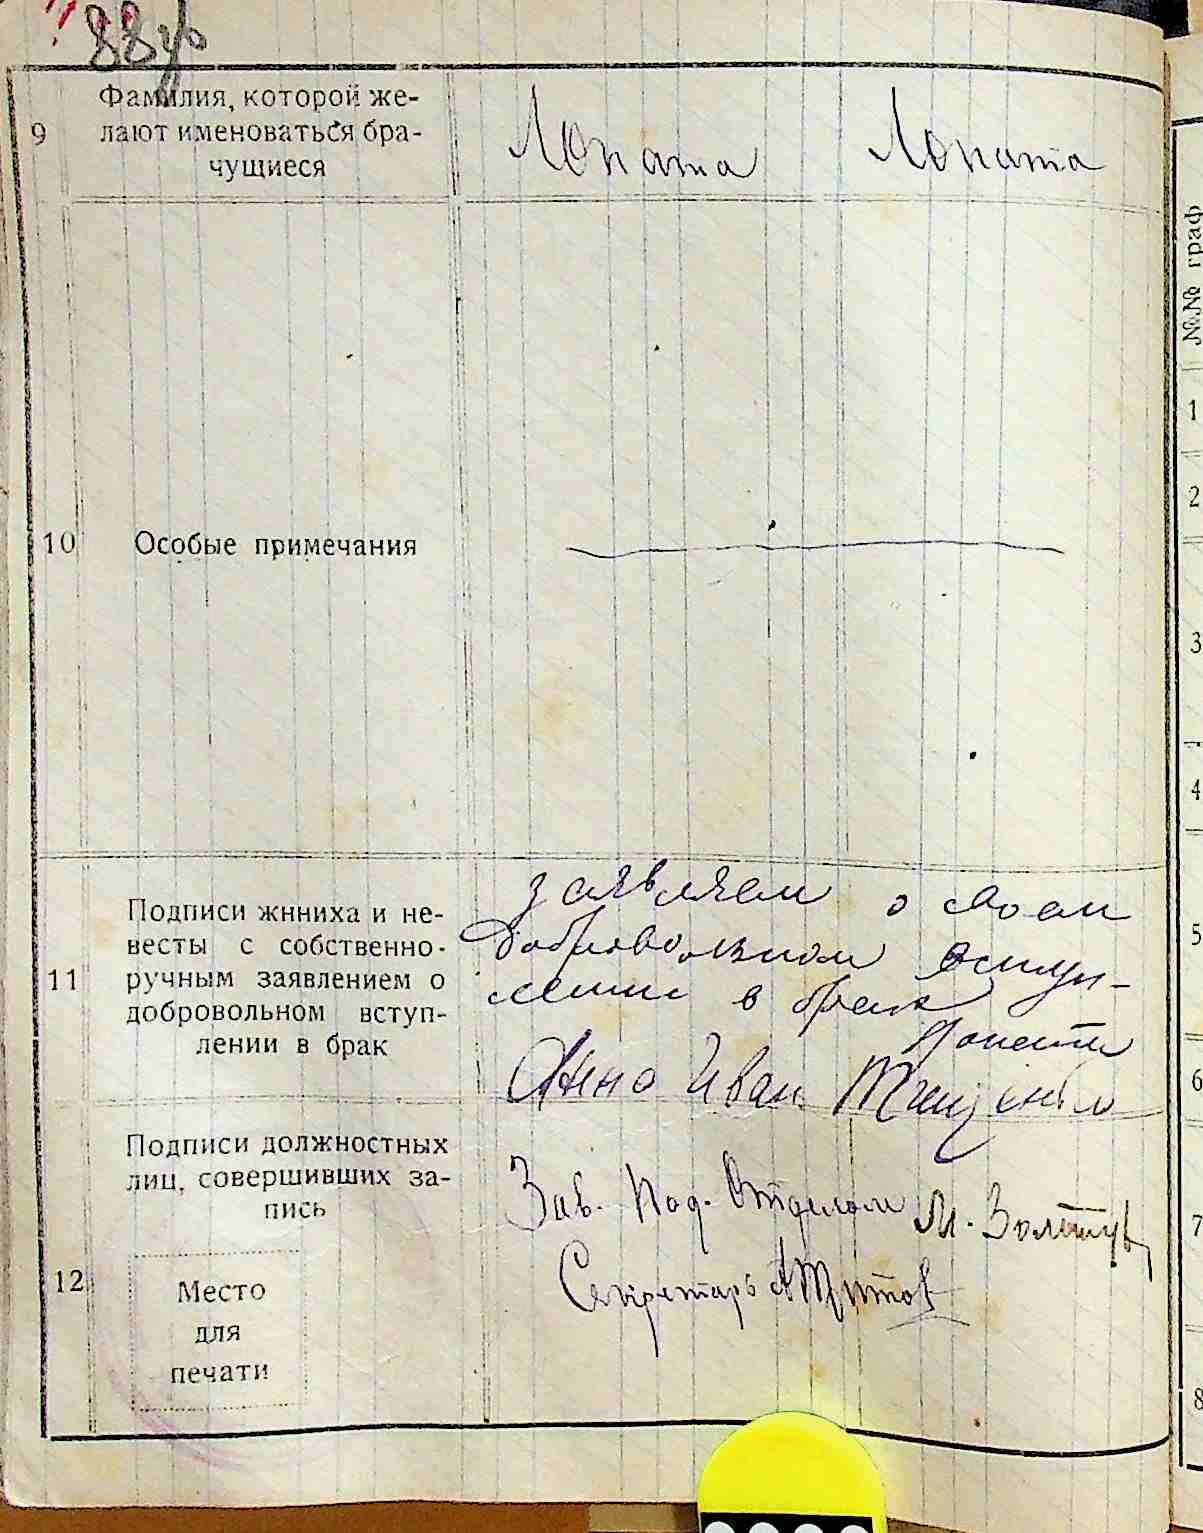 88
9
Фамилия, которой же-
лают именоваться бра-
чущиеся
Лопата Лопата
10
Особые примечания
11
Подписи жнниха и не-
весты с собственно-
ручным заявлением о
добровольном вступ-
лении в брак
заявляем о своем
добровольном вступ-
лении в брак
Анна Иван
12
Подписи должностных
лиц, совершивших за-
пись
Зав. Под. Отделом М.
Секретарь
Место
для
печати
№№ граф
1
2
3
4
5
6
7
8